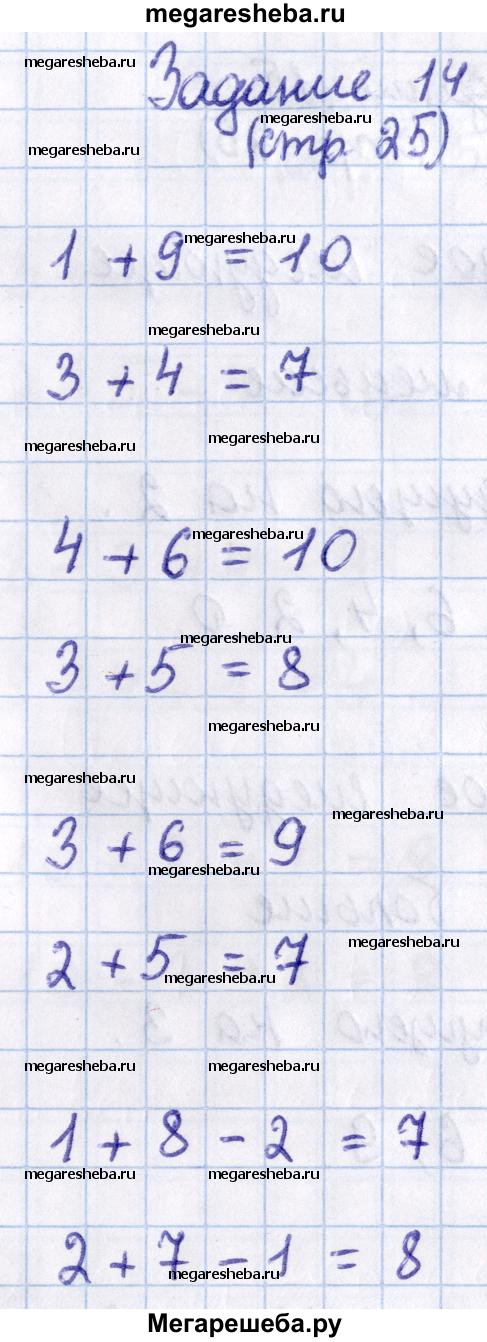 megaresheba.ru
megaresheba.ru
Задание 14
megaresheba.ru
megaresheba.ru
(стр 25)
megaresheba.ru
1 + 9 = 10
megaresheba.ru
3 + 4 = 7
megaresheba.ru
megaresheba.ru
megaresheba.ru
4 + 6 = 10
megaresheba.ru
3 + 5 = 8
megaresheba.ru
megaresheba.ru
megaresheba.ru
3 + 6 = 9
megaresheba.ru
megaresheba.ru
2 + 5 = 7
megaresheba.ru
megaresheba.ru
megaresheba.ru
1 + 8 - 2 = 7
megaresheba.ru
megaresheba.ru
2 + 7 - 1 = 8
megaresheba.ru
Мегарешеба.ру